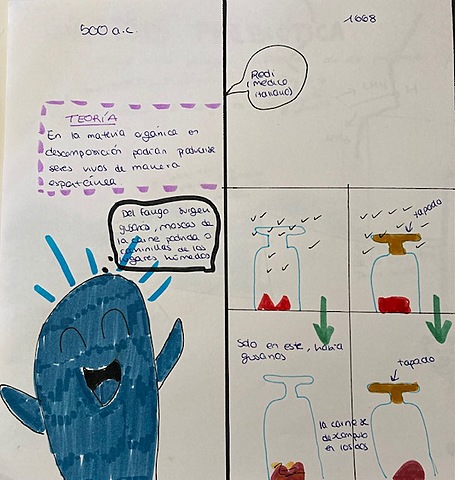 500 a.c.
TEORÍA
En la materia orgánica en
descomposición podían producirse
seres vivos de manera
espontánea
Del fango surgen
gusanos, moscas de
la carne podrida o
cochinillas de los
lugares húmedos
1668
Redi
(médico
italiano)
tapado
Solo en este, había
gusanos
tapado
la carne se
descompuso
en los dos